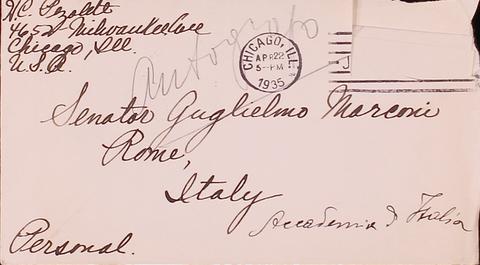 H.C.
4652 Milwaukee Ave
Chicago, Ill.
U.S.A.
Autografo
CHICAGO, ILL.
APR 22
5-PM
1935
Senator Guglielmo Marconi
Rome,
Italy
Accademia d'Italia
Personal.